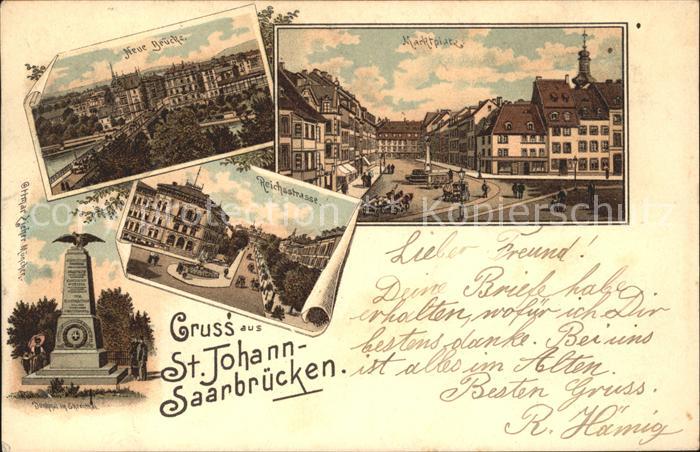 Neue Brücke.
Marktplatz
Reichsstrasse.
Ottmar Zieher München.
Denkmal im Ehrenthal
Gruss aus
St. Johann-
Saarbrücken.
Lieber Freund!
Deine Briefe habe
erhalten, wofür ich Dir
bestens danke. Bei uns
ist alles im Alten.
Besten Gruss.
R. Hämig